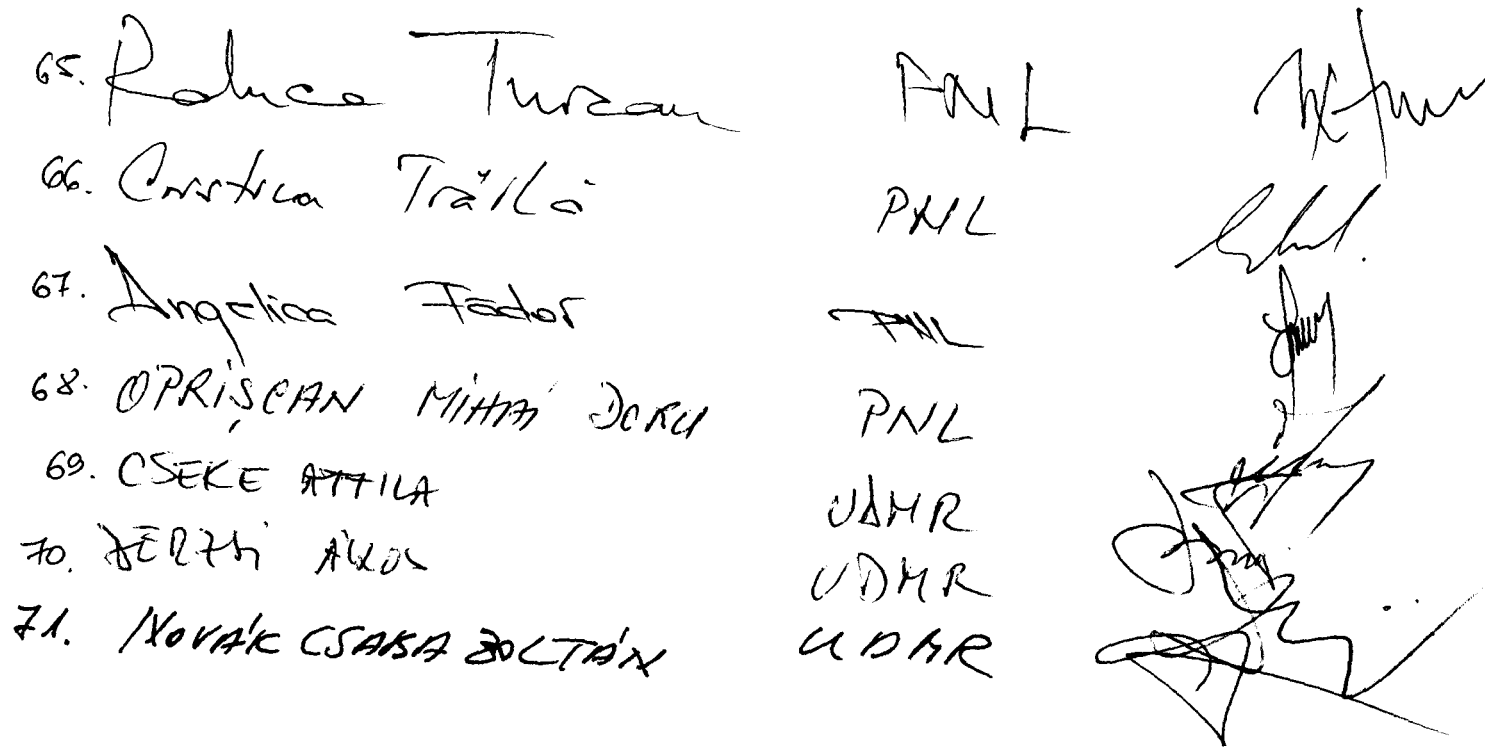 65. Raluca Turcan PNL
66. Cristina Trăilă PNL
67. Angelica Fădor PNL
68. OPRIȘCAN MIHAI DORU PNL
69. CSEKE ATTILA UDMR
70. DERZSI ÁKOS UDMR
71. NOVÁK CSABA ZOLTÁN UDMR